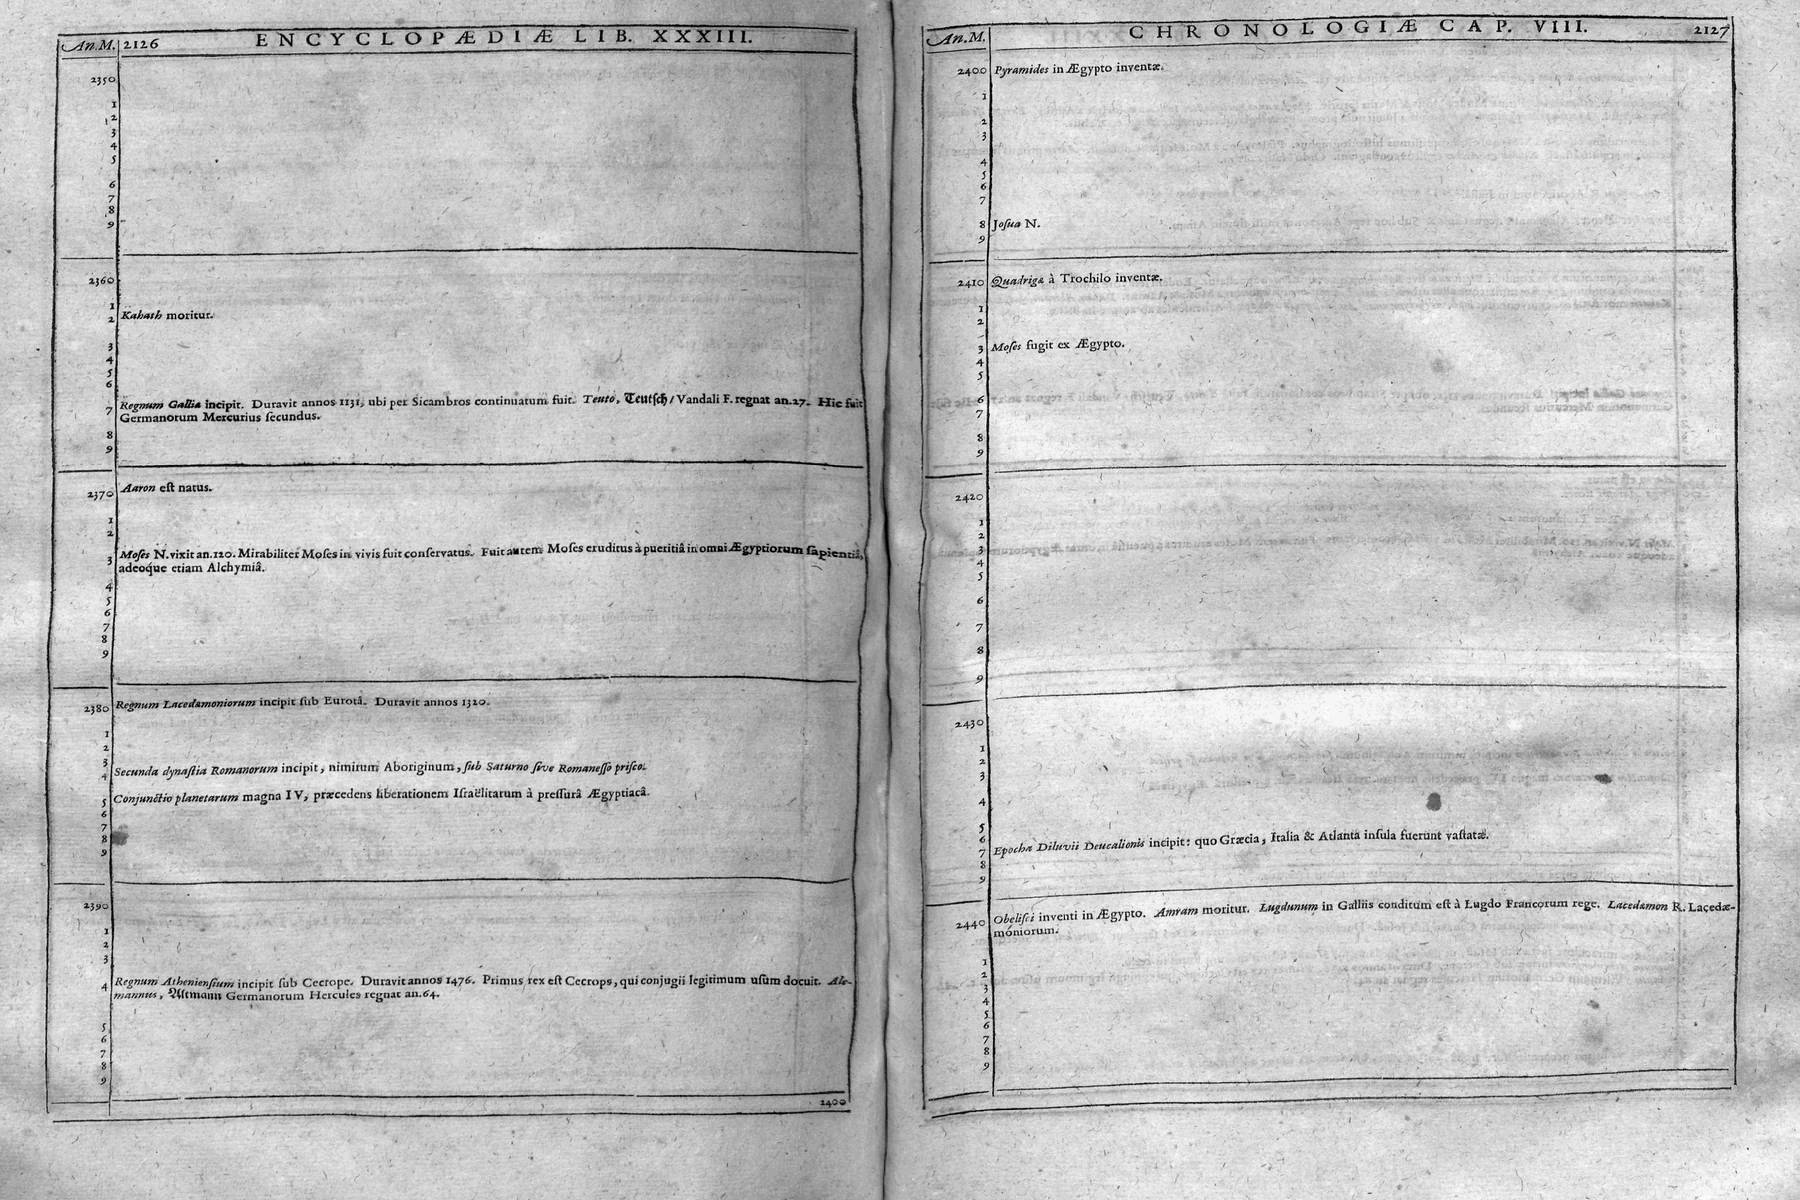 An.M. 2126 ENCYCLOPÆDIÆ LIB. XXXIII.
2350
1
2
3
4
5
6
7
8
9
2360
1
2 Kahath moritur.
3
4
5
6
7 Regnum Galliæ incipit. Duravit annos 1131, ubi per Sicambros continuatum fuit. Teuto, Teutſch / Vandali F. regnat an.27. Hic fuit
Germanorum Mercurius ſecundus.
8
9
2370 Aaron eſt natus.
1
2
3 Moſes N. vixit an.120. Mirabiliter Moſes in vivis fuit conſervatus. Fuit autem Moſes eruditus à pueritiâ in omni Ægyptiorum ſapientiâ,
adeoque etiam Alchymiâ.
4
5
6
7
8
9
2380 Regnum Lacedæmoniorum incipit ſub Eurotâ. Duravit annos 1320.
1
2
3
4 Secunda dynaſtia Romanorum incipit, nimirum Aboriginum, ſub Saturno ſive Romaneſſo priſco.
5 Conjunctio planetarum magna IV, præcedens liberationem Iſraëlitarum à preſſurâ Ægyptiacâ.
6
7
8
9
2390
1
2
3
4 Regnum Athenienſium incipit ſub Cecrope. Duravit annos 1476. Primus rex eſt Cecrops, qui conjugii legitimum uſum docuit. Ale-
mannus, Altmann Germanorum Hercules regnat an.64.
5
6
7
8
9
2400
An.M. CHRONOLOGIÆ CAP. VIII. 2127
2400 Pyramides in Ægypto inventæ.
1
2
3
4
5
6
7
8 Joſua N.
9
2410 Quadrigæ à Trochilo inventæ.
1
2
3 Moſes fugit ex Ægypto.
4
5
6
7
8
9
2420
1
2
3
4
5
6
7
8
9
2430
1
2
3
4
5
6
7 Epocha Diluvii Deucalionis incipit: quo Græcia, Italia & Atlanta inſula fuerunt vaſtatæ.
8
9
2440 Obeliſci inventi in Ægypto. Amram moritur. Lugdunum in Galliis conditum eſt à Lugdo Francorum rege. Lacedæmon R. Lacedæ-
moniorum.
1
2
3
4
5
6
7
8
9